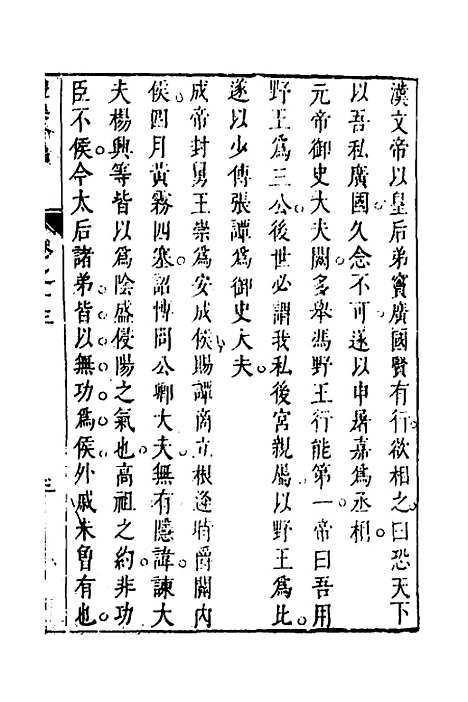 漢文帝以皇后弟竇廣國賢有行欲相之曰恐天下
以吾私廣國久念不可遂以申屠嘉爲丞相
元帝御史大夫闕多舉馮野王行能第一帝曰吾用
野王爲三公後世必謂我私後宮親屬以野王爲比
遂以少傅張譚爲御史大夫
成帝封舅王崇爲安成侯賜譚商立根逢時爵關内
侯四月黃霧四塞詔博問公卿大夫無有隱諱諫大
夫楊興等皆以爲陰盛侵陽之氣也高祖之約非功
臣不侯今太后諸弟皆以無功爲侯外戚未曾有也
卷之十三